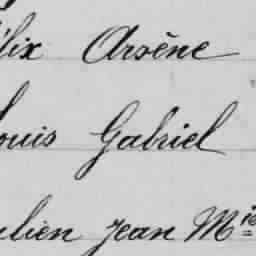 lix Arsène
ouis Gabriel
ulien Jean Mie